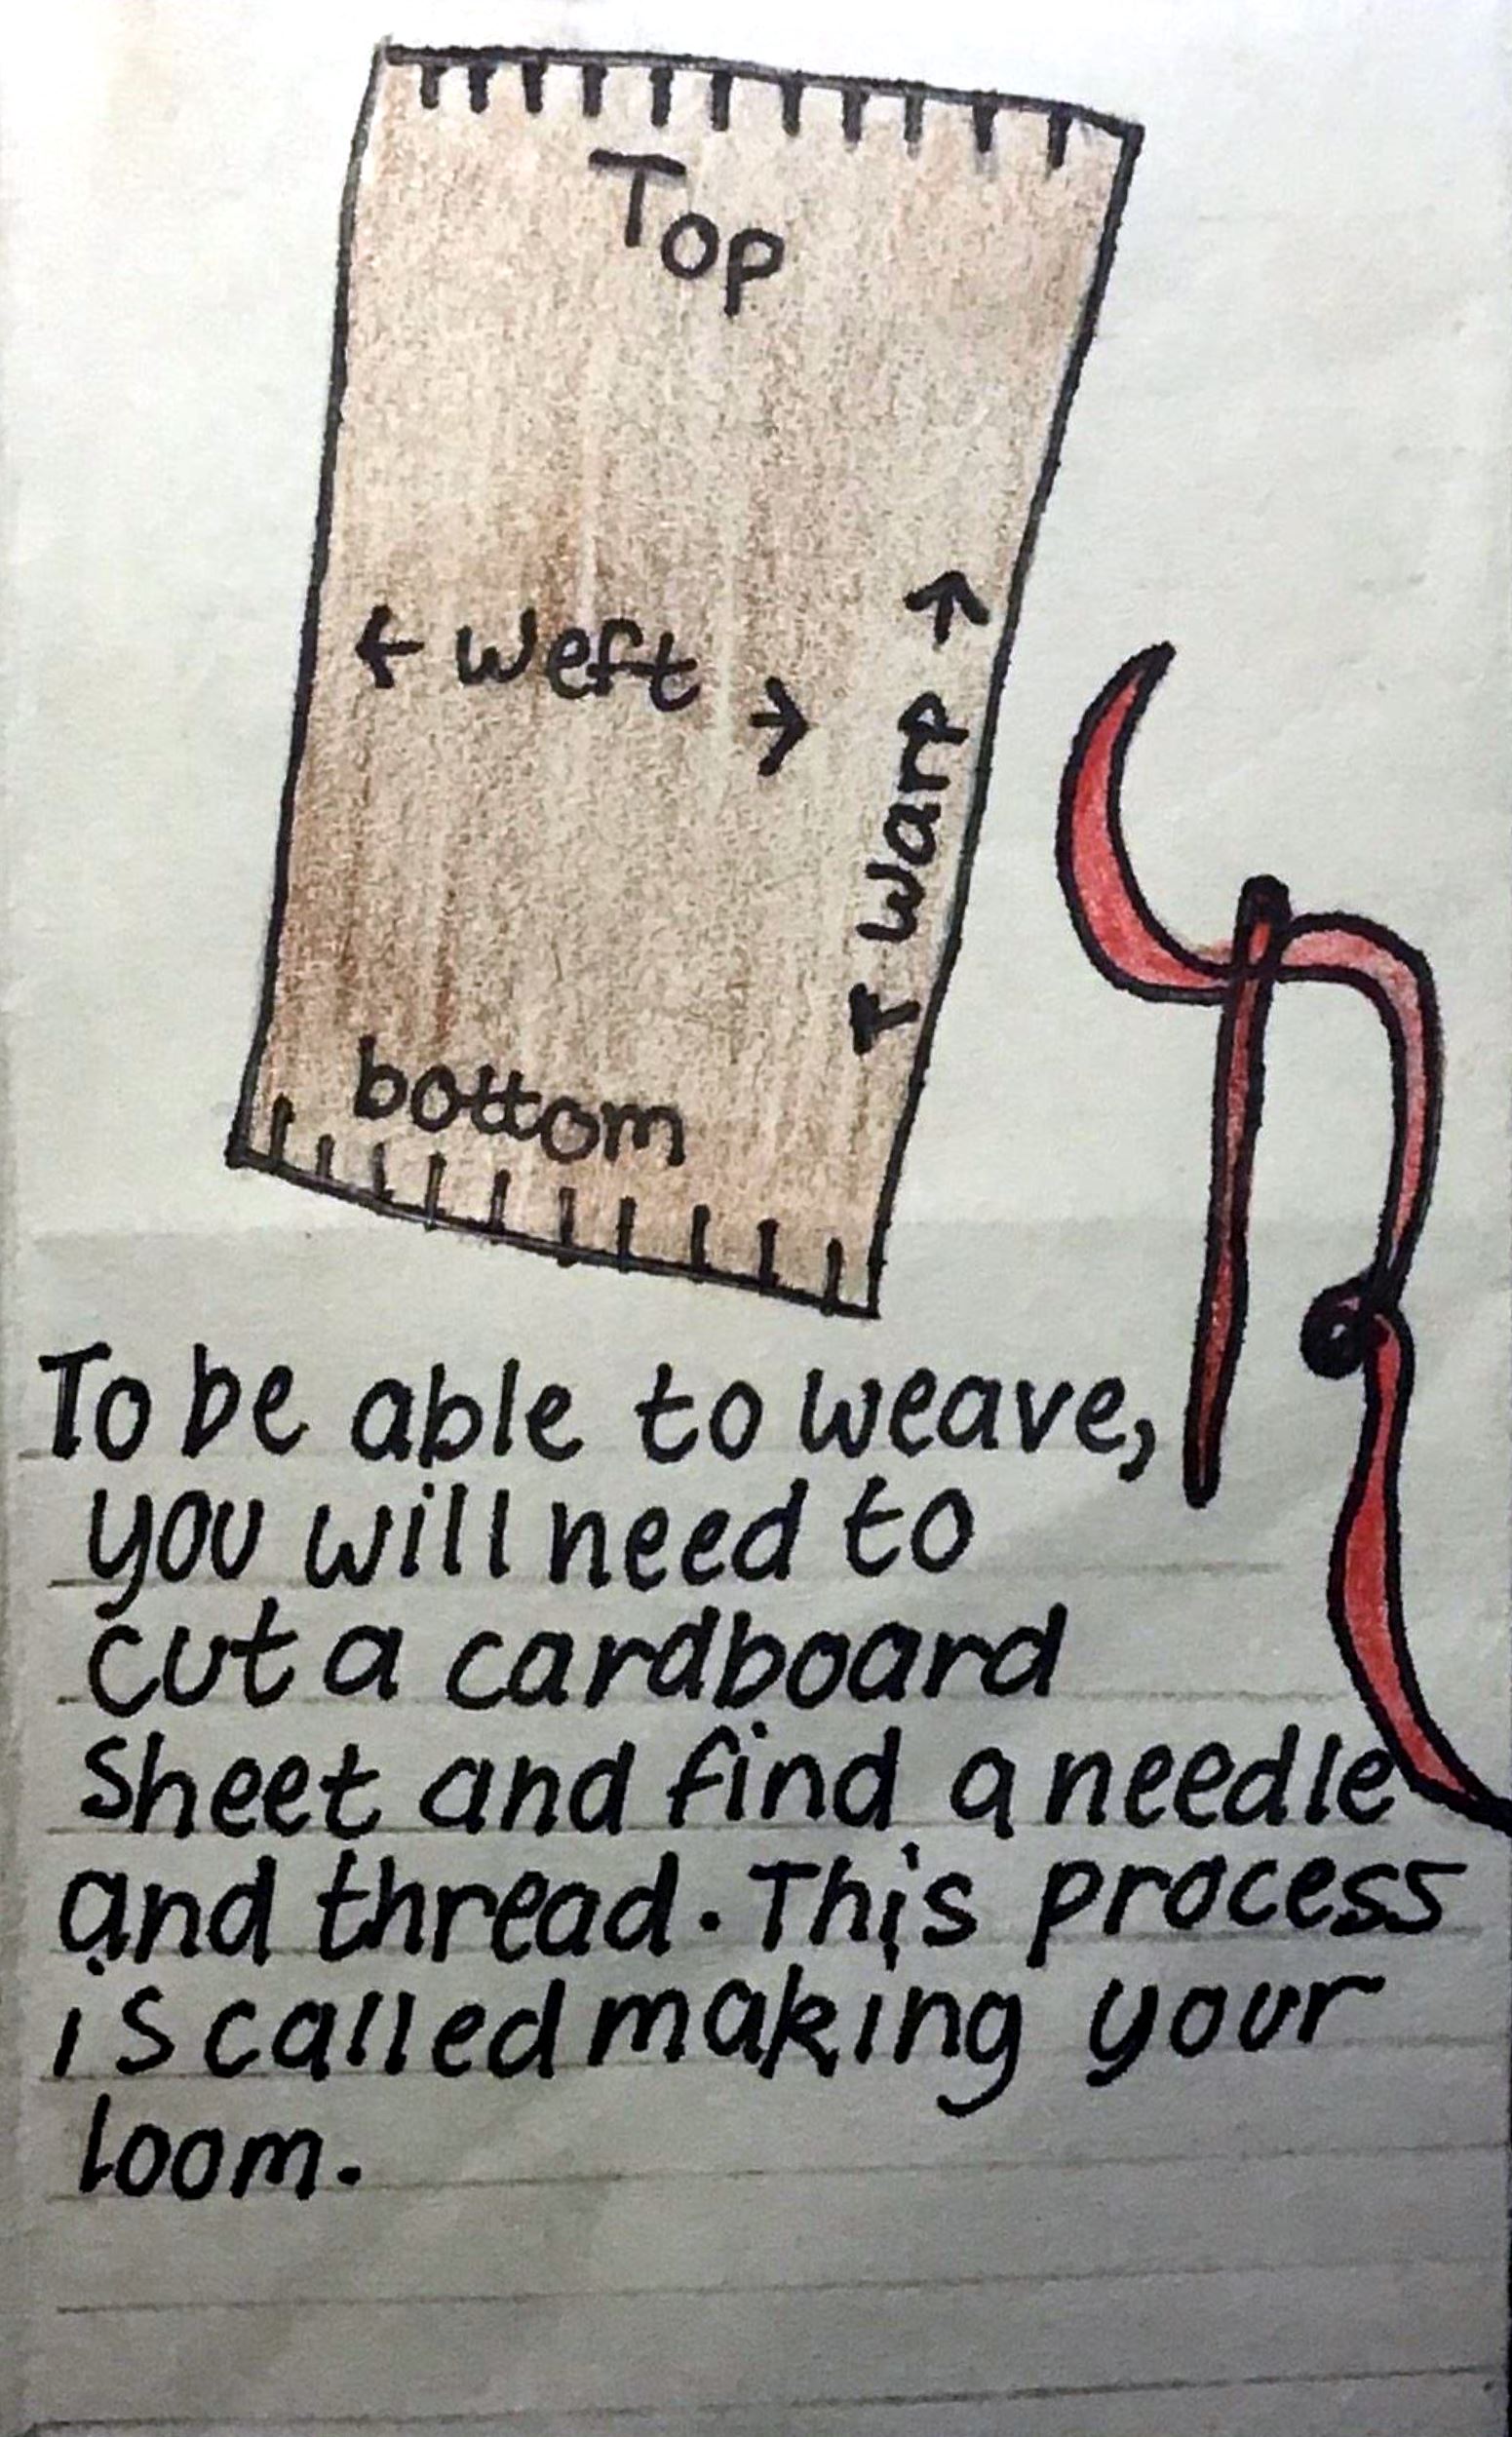 Top
← weft →
← warp →
bottom
To be able to weave,
you will need to
cut a cardboard
sheet and find a needle
and thread. This process
is called making your
loom.